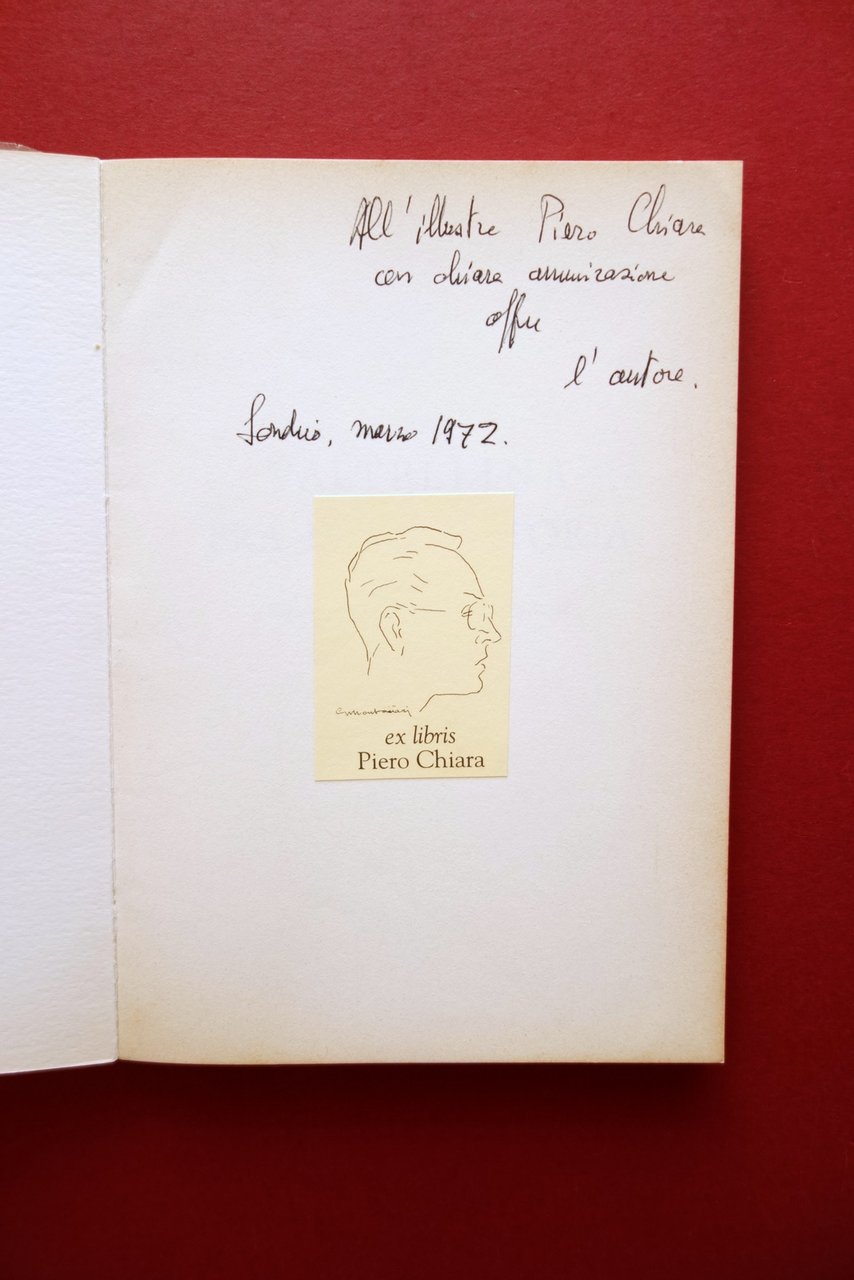 All'illustre Piero Chiara
con chiara ammirazione
offre
l'autore.
Sondrio, marzo 1972.
ex libris
Piero Chiara